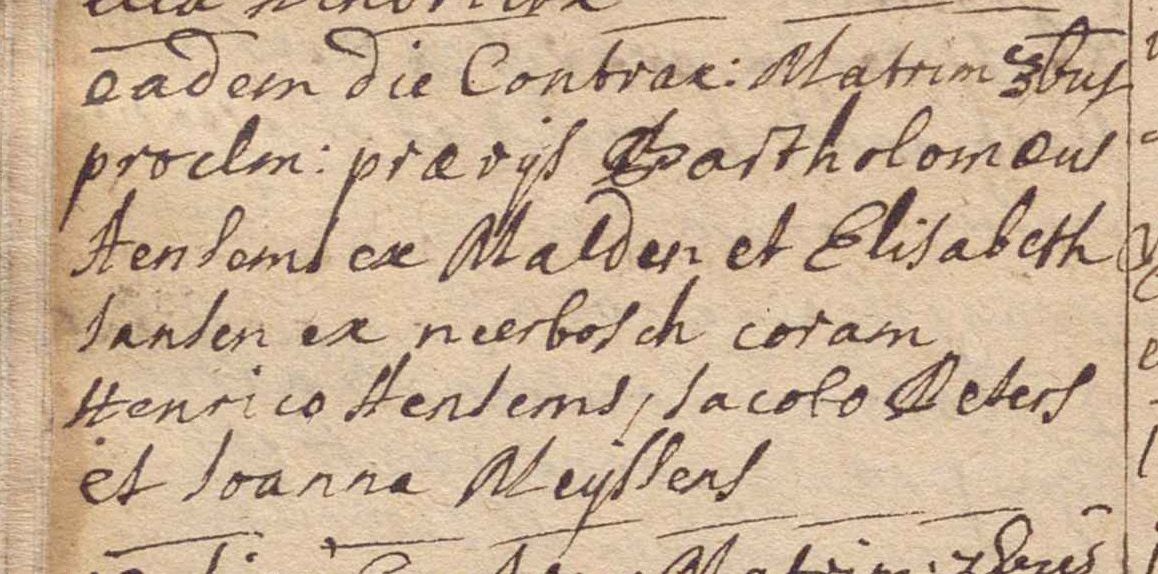 eadem die Contrax: Matrim 3bus
proclm: prævijs Bartholomæus
Hensems ex Malden et Elisabeth
Iansen ex neerbosch coram
Henrico Hensems, Iacobo Peters
et Ioanna Meyssens